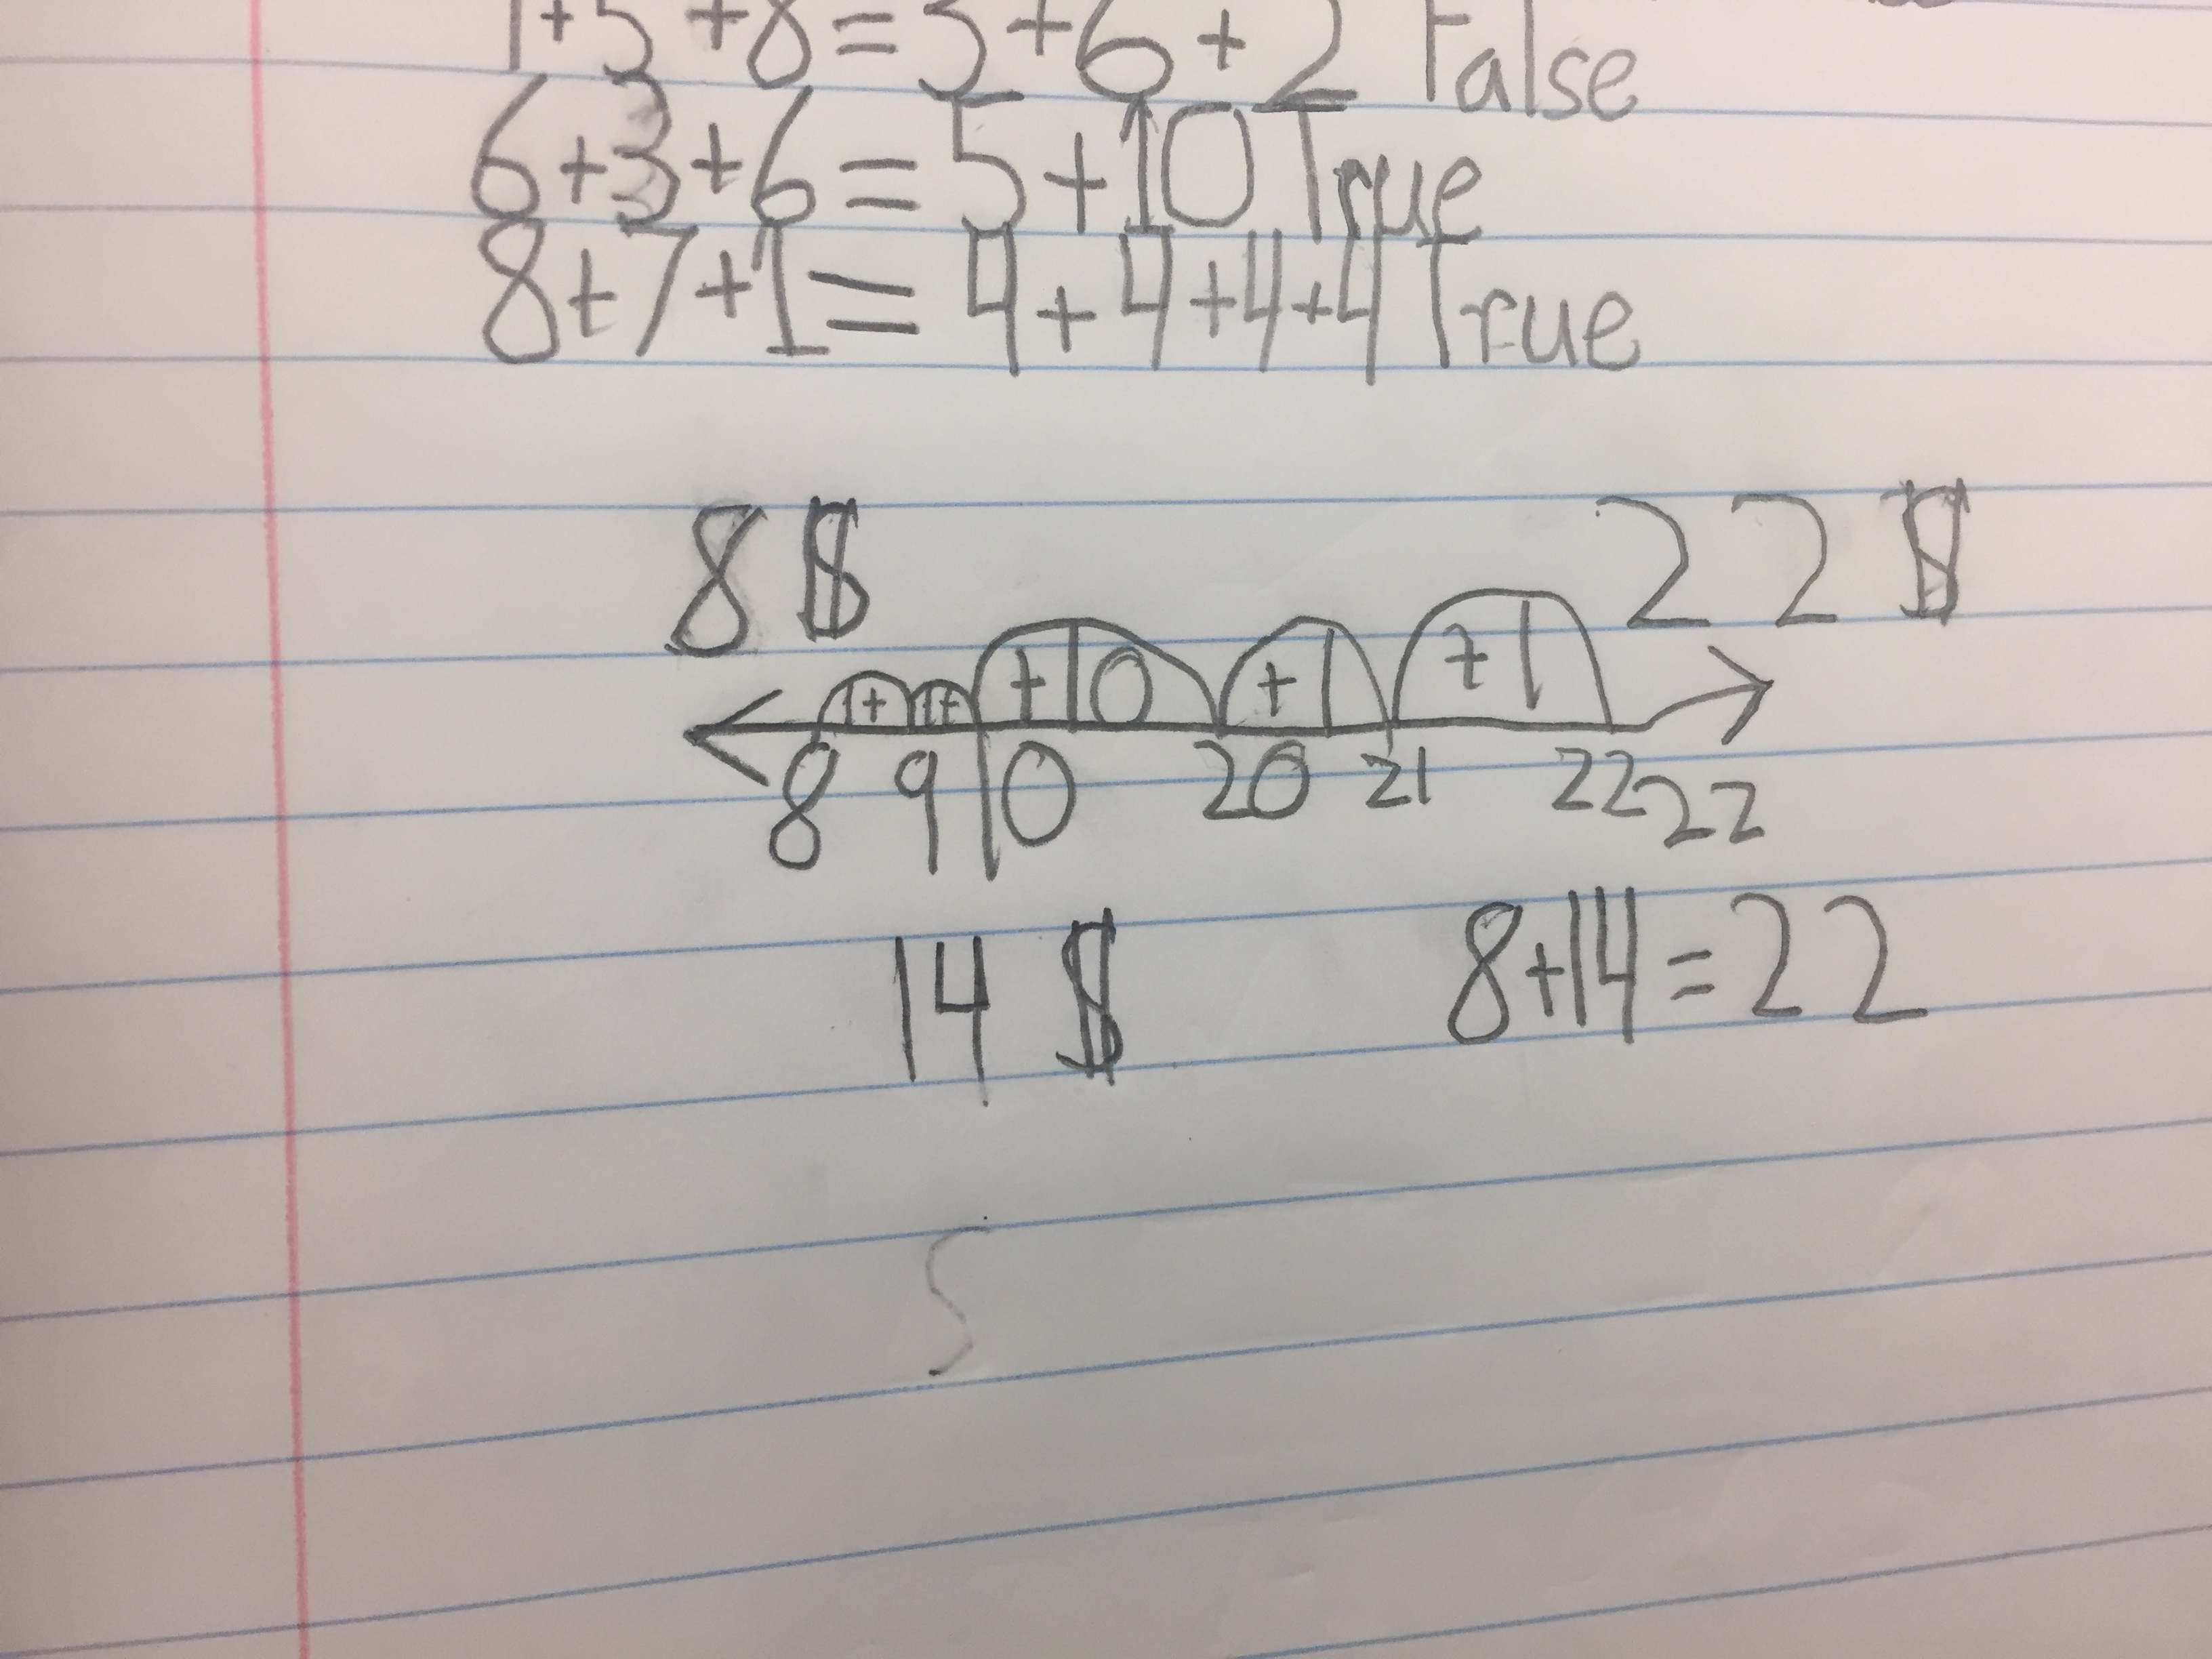 1+5+8=5+6+2 False
6+3+6=5+10 True
8+7+1=4+4+4+4 True
8$ 22$
1+ 1+ +10 +1 +1
8 9 10 20 21 22 22
14 $ 8+14=22
5